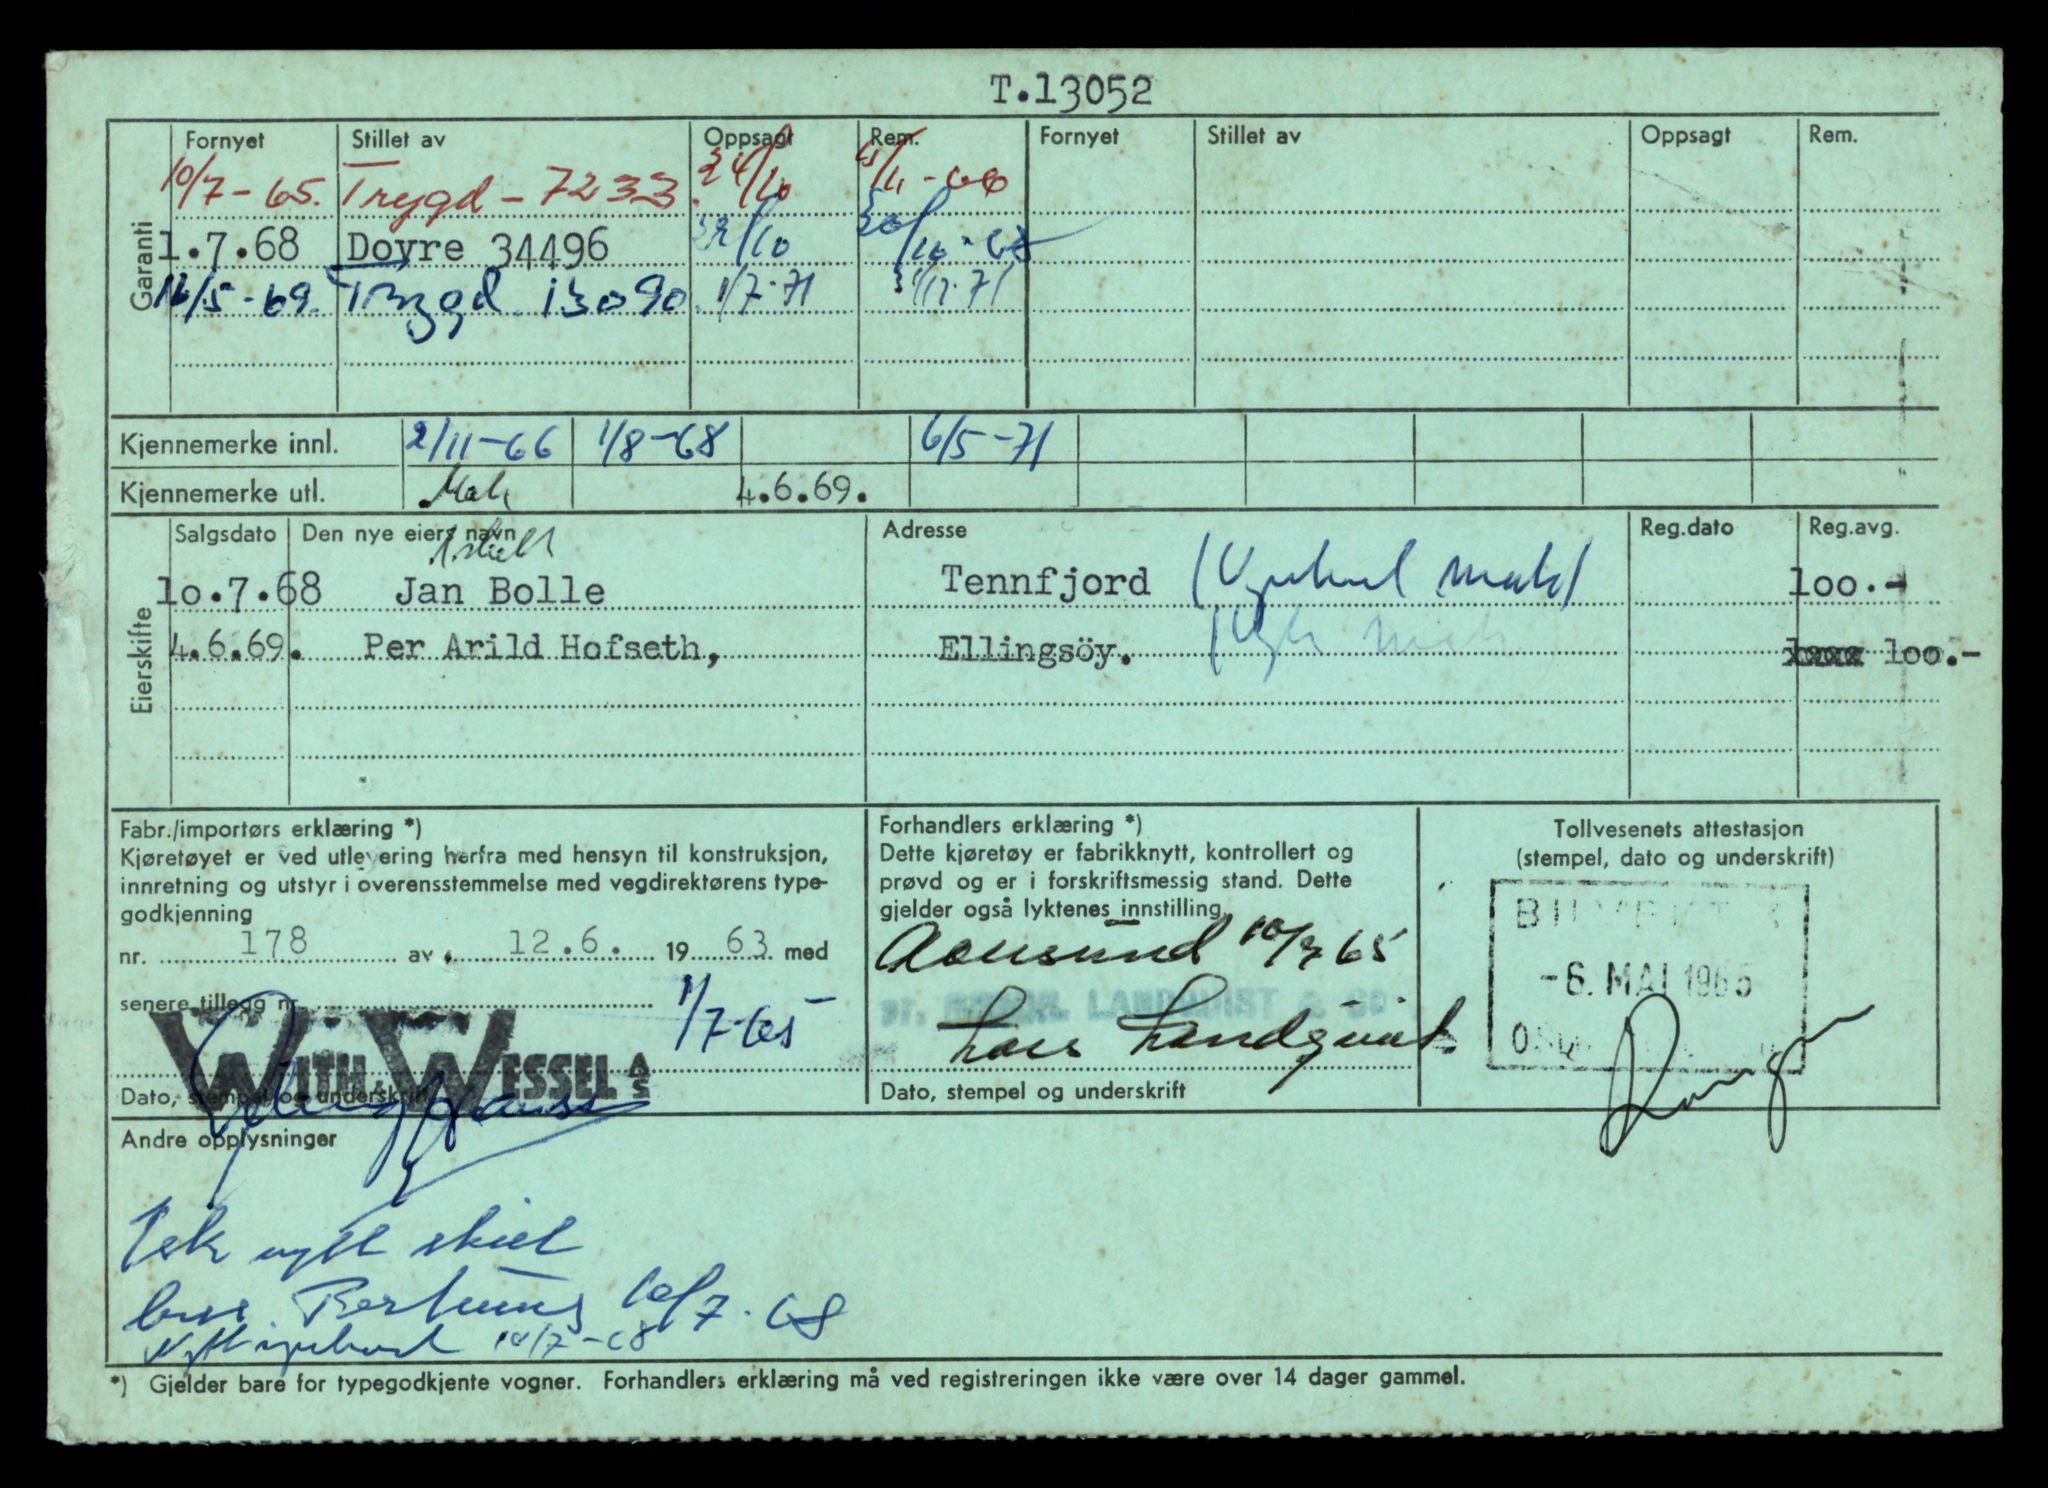 T.13052
Fornyet Stillet av Oppsagt Rem. Fornyet Stillet av Oppsagt Rem.
Garanti
10/7-65. Trygd - 7233. 24/10 4/11-66
1.7.68 Dovre 34496 22/10 30/10-68
16/5-69. Trygd 13090 1/7-71
Kjennemerke innl. 2/11-66 1/8-68 6/5-71
Kjennemerke utl. 4.6.69.
Eierskifte
Salgsdato Den nye eiers navn Adresse Reg.dato Reg.avg.
10.7.68 Jan Bolle Tennfjord 100.-
4.6.69. Per Arild Hofseth, Ellingsöy. 100.-
Fabr./importørs erklæring *)
Kjøretøyet er ved utlevering herfra med hensyn til konstruksjon,
innretning og utstyr i overensstemmelse med vegdirektørens type-
godkjenning
nr. 178 av 12.6. 19 63 med
senere tillegg nr.
1/7-65
WITH & WESSEL A/S
Dato, stempel og underskrift
Forhandlers erklæring *)
Dette kjøretøy er fabrikknytt, kontrollert og
prøvd og er i forskriftsmessig stand. Dette
gjelder også lyktenes innstilling.
Aalesund 10/7 65
pr. LANDQUIST & CO
Lars Landquist
Dato, stempel og underskrift
Tollvesenets attestasjon
(stempel, dato og underskrift)
-6. MAI 1965
Andre opplysninger
nytt skilt
10/7-68
10/7-68
*) Gjelder bare for typegodkjente vogner. Forhandlers erklæring må ved registreringen ikke være over 14 dager gammel.